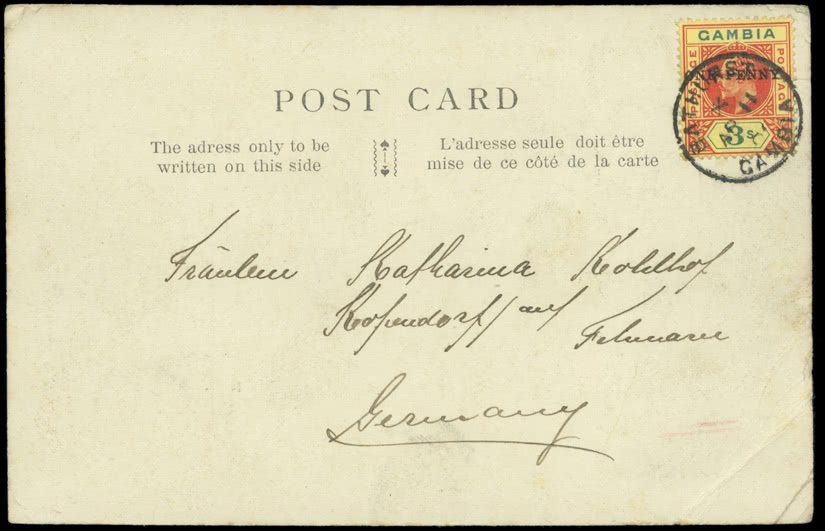 GAMBIA
POSTAGE POSTAGE
ONE PENNY
3s
BATHURST
GAMBIA
POST CARD
The adress only to be
written on this side
L'adresse seule doit être
mise de ce côté de la carte
Fräulein Katharina Kohlhof
Kopendorff/auf
Fehmarn
Germany